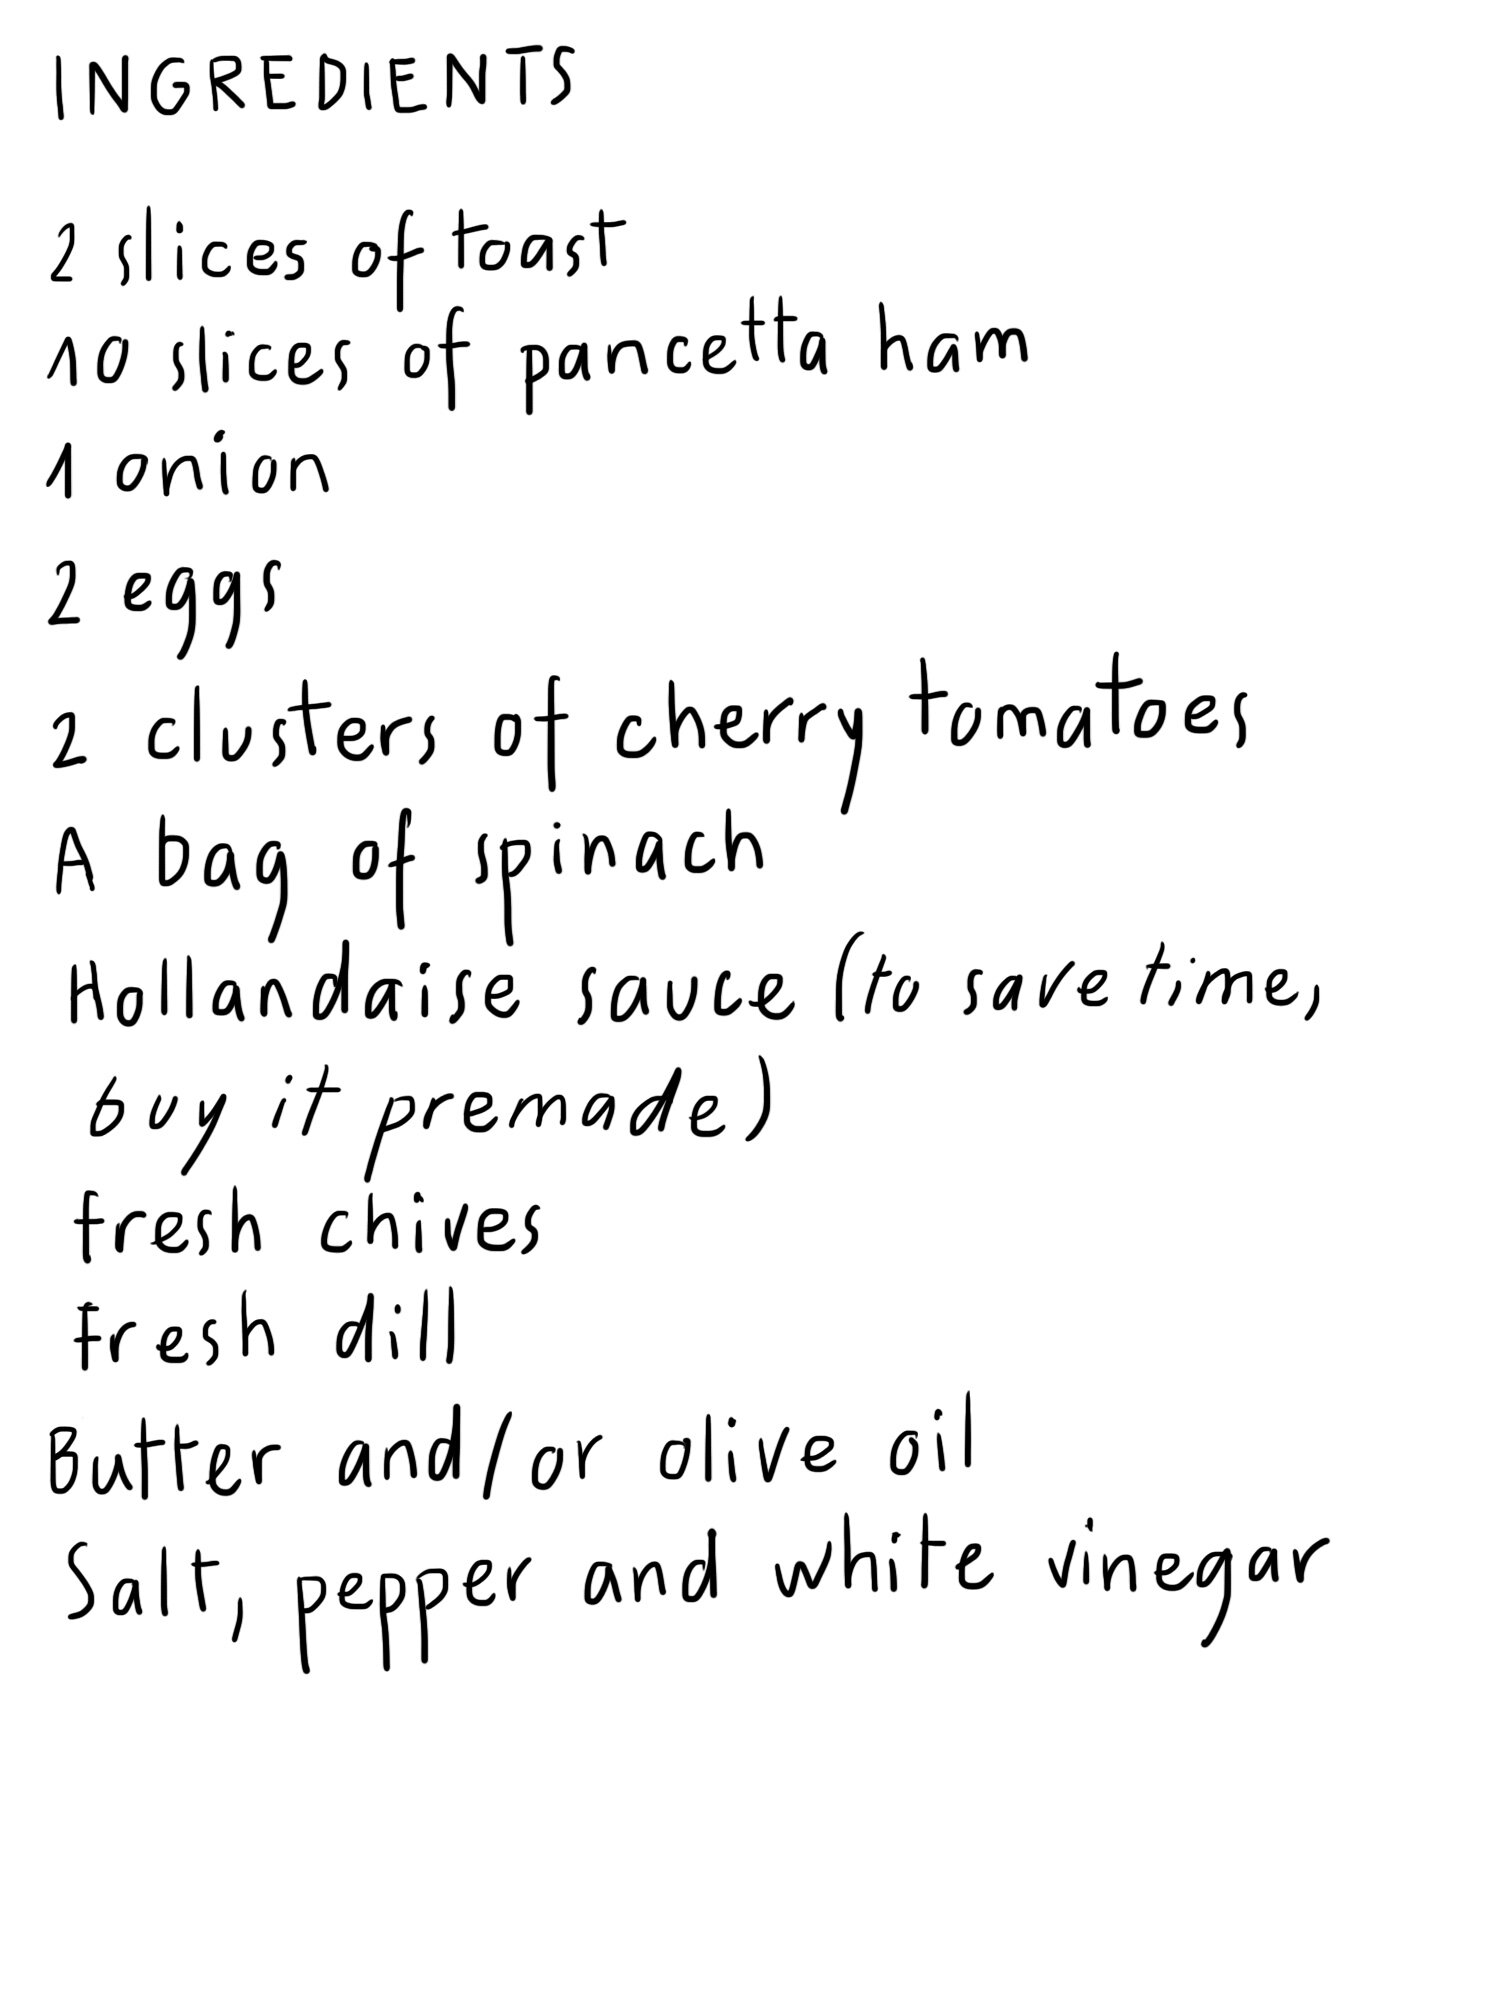 INGREDIENTS
2 slices of toast
10 slices of pancetta ham
1 onion
2 eggs
2 clusters of cherry tomatoes
A bag of spinach
Hollandaise sauce (to save time,
buy it premade)
fresh chives
fresh dill
Butter and/or olive oil
Salt, pepper and white vinegar